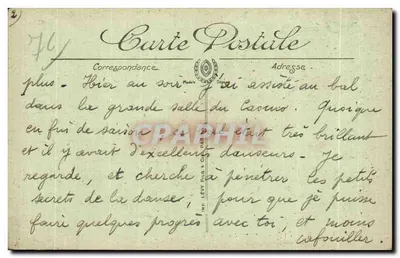 2)
76
Carte Postale
Correspondance
Adresse
plus. Hier au soir j'ai assisté au bal
dans la grande salle du Casino. Quoique
en fin de saison, c'était très brillant
et il y avait d'excellents danseurs. Je
regarde, et cherche à pénétrer les petits
secrets de la danse, pour que je puisse
faire quelques progrès avec toi, et moins
cafouiller.
CARPHILA